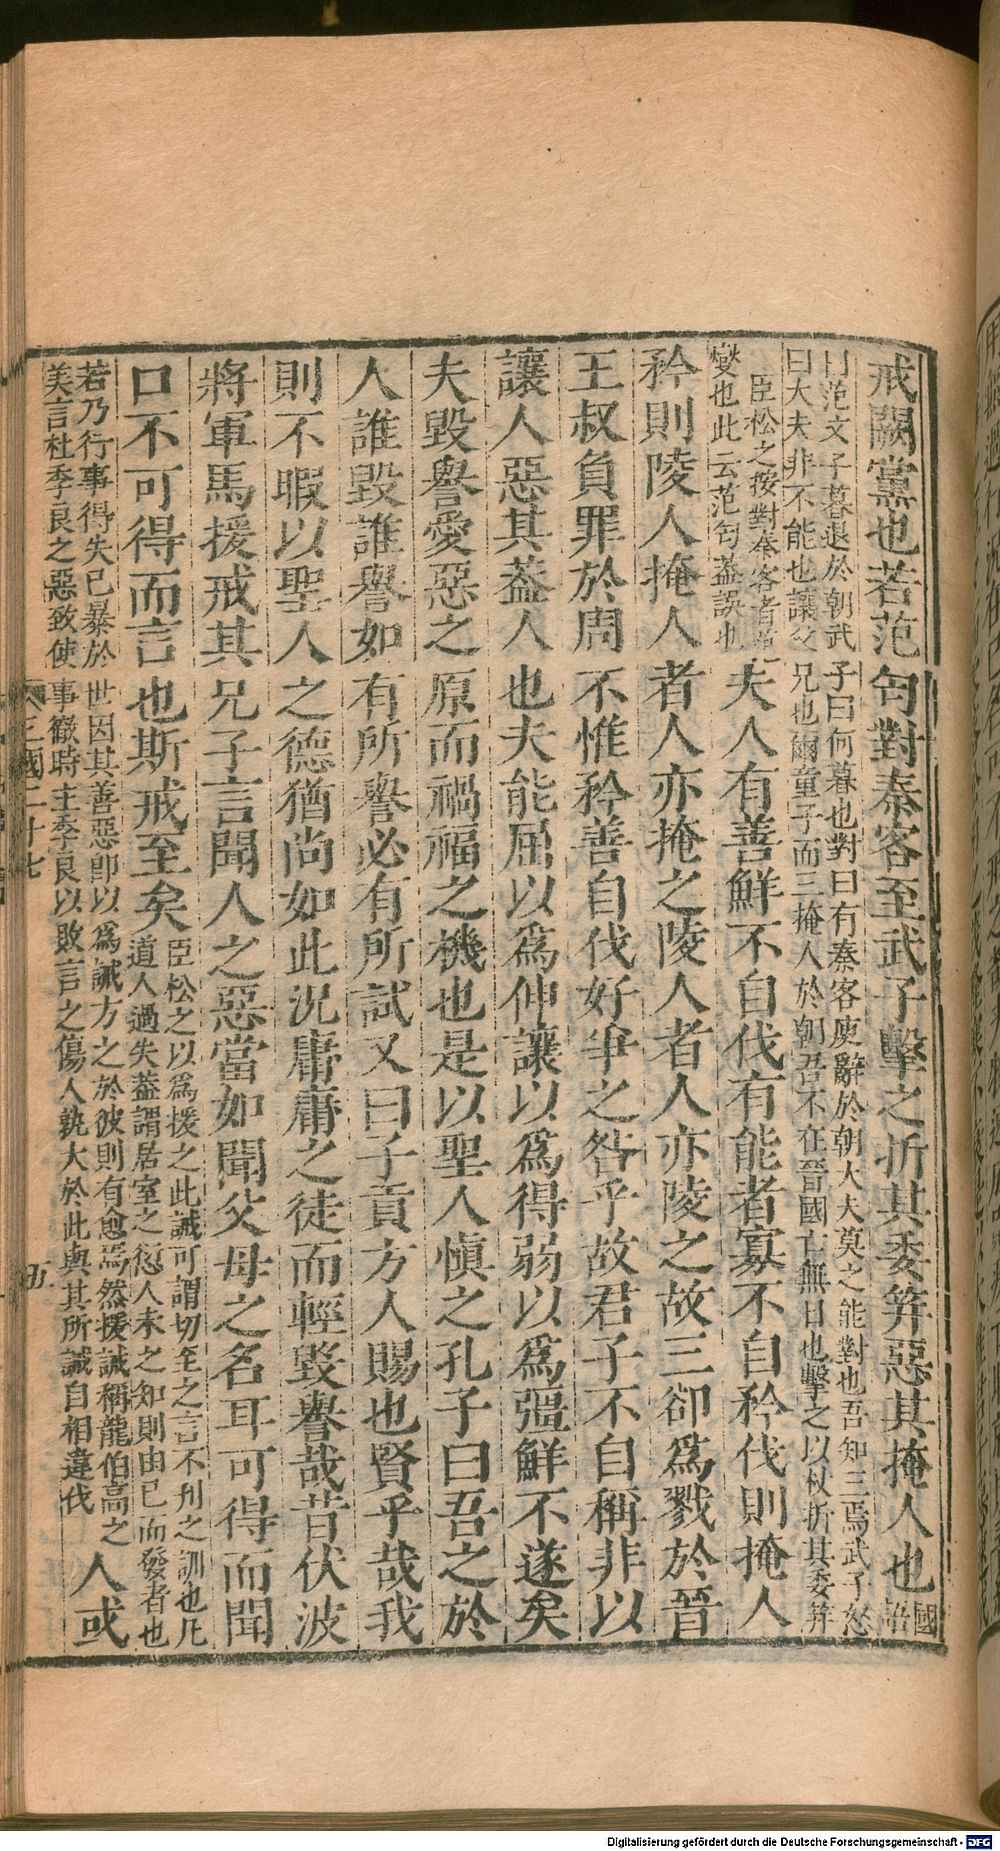 戒闕黨也若范匄對秦客至武子擊之折其委笄惡其掩人也國語
曰范文子暮退於朝武子曰何暮也對曰有秦客廋辭於朝大夫莫之能對也吾知三焉武子怒
曰大夫非不能也讓父兄也爾童子而三掩人於朝吾不在晉國亡無日也擊之以杖折其委笄
臣松之按對秦客者
燮也此云范匄蓋誤也
夫人有善鮮不自伐有能者寡不自矜伐則掩人
矜則陵人掩人者人亦掩之陵人者人亦陵之故三郤爲戮於晉
王叔負罪於周不惟矜善自伐好爭之咎乎故君子不自稱非以
讓人惡其蓋人也夫能屈以爲伸讓以爲得弱以爲彊鮮不遂矣
夫毀譽愛惡之原而禍福之機也是以聖人愼之孔子曰吾之於
人誰毀誰譽如有所譽必有所試又曰子貢方人賜也賢乎哉我
則不暇以聖人之德猶尚如此況庸庸之徒而輕毀譽哉昔伏波
將軍馬援戒其兄子言聞人之惡當如聞父母之名耳可得而聞
口不可得而言也斯戒至矣
臣松之以爲援之此誡可謂切至之言不刋之訓也凡
道人過失蓋謂居室之愆人未之知則由已而發者也
若乃行事得失已暴於世因其善惡卽以爲誡方之於彼則有愈焉然援誡稱龍伯高之
美言杜季良之惡致使事徹時主季良以敗言之傷人孰大於此與其所誡自相違伐
人或
三國二十七
五
Digitalisierung gefördert durch die Deutsche Forschungsgemeinschaft - DFG